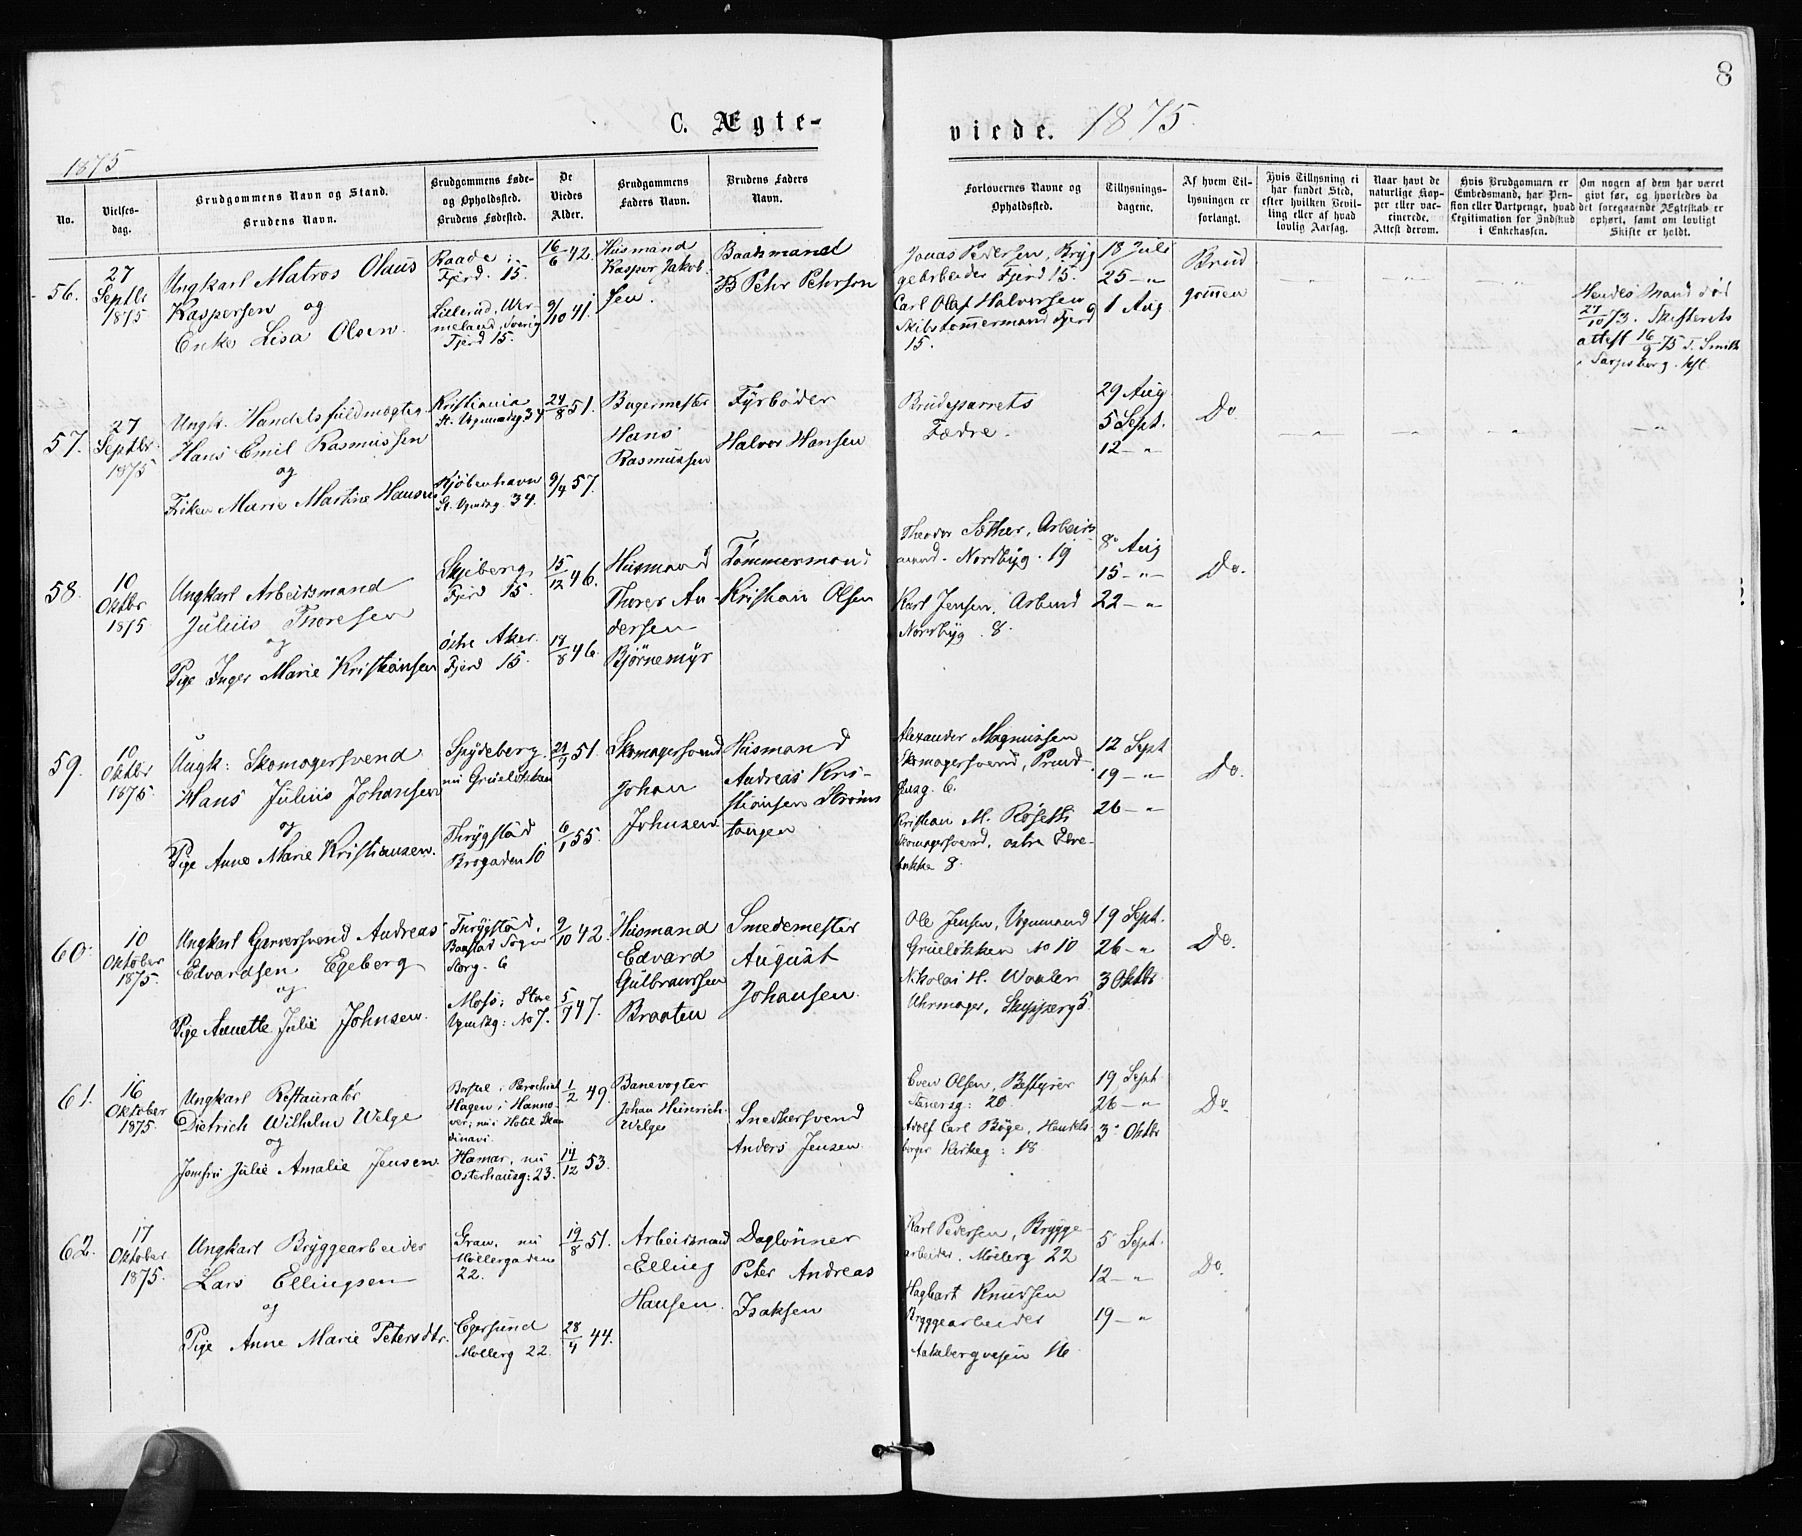 8
C. Ægte-
viede. 1875.
1875
No.
Vielses-
dag.
Brudgommens Navn og Stand.
Brudens Navn.
Brudgommens Føde-
og Opholdssted.
Brudens Fødested.
De
Viedes
Alder.
Brudgommens
Faders Navn.
Brudens Faders
Navn.
Forlovernes Navne og
Opholdssted.
Tillysnings-
dagene.
Af hvem Til-
lysningen er
forlangt.
Hvis Tillysning ei
har fundet Sted,
efter hvilken Bevil-
ling eller af hvad
lovlig Aarsag.
Naar havt de
naturlige Kop-
per eller vac-
cinerede.
Attest derom.
Hvis Brudgommen er
Embedsmand, har Pen-
sion eller Vartpenge, hvad
Legitimation for Indskud
i Enkekassen.
Om nogen af dem har været
givt før, og hvorledes da
det foregaaende Ægteskab er
ophørt, samt om lovligt
Skifte er holdt.
56.
27
Septbr
1875
Ungkarl Matros Olaus
Kaspersen og
Enke Lisa Olsen.
Raade;
Fjerd. 15.
Lillerud, Ver-
meland, Sverig
Fjerd 15.
16/6 42.
9/10 41.
Husmand
Kasper Jakob-
sen.
Baadsmand
B Pehr Pehrson
Jonas Pedersen, Bryg-
gearbeider Fjerd 15.
Carl Olaf Halvorsen
Skibstømmermand Fjerd
15.
18 Juli
25 - "
1 Aug
Brud
gommen
Hendes Mand død
27/10 73. Skifterets
attest 16/9 75 T. Smith
Sarpsborg. Test.
57.
27
Septbr.
1875
Ungk. Handelsfuldmægtig
Hans Emil Rasmussen
og
Frøken Marie Martine Hansen
Kristiania
St. Vognmandsg 34
Kjøbenhavn
St. Vgmdsg. 34.
24/8 51.
9/4 57.
Bagermester
Hans
Rasmussen
Fyrbøder
Halvor Hansen
Brudeparrets
Fædre.
29 Aug
5 Sept.
12 - "
Do
58.
10
Oktbr
1875
Ungkarl Arbeidsmand
Julius Thoresen
og
Pige Inger Marie Kristiansen
Skjeberg,
Fjerd 15.
Østre Aker.
Fjerd 15.
15/12 46.
18/8 46.
Husmand
Thorer An-
dersen
Bjørnemyr
Tømmermand
Kristian Olsen
Theodor Sæther, Arbeids
mand. Nordbyg. 19
Karl Jensen, Arbmd
Nordbyg. 8.
8 Aug
15 - "
22 - "
Do.
59.
10
Oktbr
1875.
Ungk: Skomagersvend
Hans Julius Johansen
og
Pige Anne Marie Kristiansen.
Spydeberg.
nu Grueløkken
Thrygstad
Brogaden 10
6/1 55.
Skomagersvend
Johan
Johnsen
Husmand
Andreas Kri-
stiansen Strøms
tangen
Alexander Magnussen
Skomagersvend, Prind-
sensg. 6.
Kristian M. Røseth
Skomagersvend, østre Elve-
bakke 8.
12 Sept
19 - "
26 - "
Do.
60.
10
Oktober
1875.
Ungkarl Garversvend Andreas
Edvardsen Egeberg
og
Pige Annette Julie Johnsen.
Thrygstad,
Baastad Sogn
Storg. 6
Moss: Store
Vgmdsg: No 7.
9/10 42.
5/7 47.
Husmand
Edvard
Gulbrandsen
Braaten
Smedemester
August
Johansen.
Ole Jensen, Vognmand
Grueløkken No 10
Nikolai H. Waaler
Uhrmager, Skipperg 5.
19 Sept.
26 - "
3 Oktbr
Do.
61.
16
Oktober
1875.
Ungkarl Restauratør
Dietrich Wilhelm Welge
og
Jomfru Julie Amalie Jensen.
Borstel i Parochiet
Hagen i Hanno-
ver, nu Hotel Skan
dinavi.
Hamar, nu
Osterhausg: 23.
1/2 49.
14/12 53.
Banevogter
Johan Heinrich
Welge
Snedkersvend
Anders Jensen
Even Olsen, Bestyrer
Stenersg: 20
Adolf Carl Böge, Handels
borger Kirkeg: 18
19 Sept
26 - "
3 Oktbr
Do
62.
17
Oktober
1875.
Ungkarl Bryggearbeider
Lars Ellingsen
og
Pige Anne Marie Petersdtr.
Gran, nu
Møllergaden
22.
Egersund
Møllerg 22.
19/8 51.
28/4 44.
Arbeidsmand
Elling
Hansen.
Daglønner
Peter Andreas
Isaksen
Karl Pedersen, Brygge-
arbeider. Møllerg 22
Hagbart Knudsen
Bryggearbeider
Aakebergveien 16
5 Sept.
12 - "
19 - "
Do.